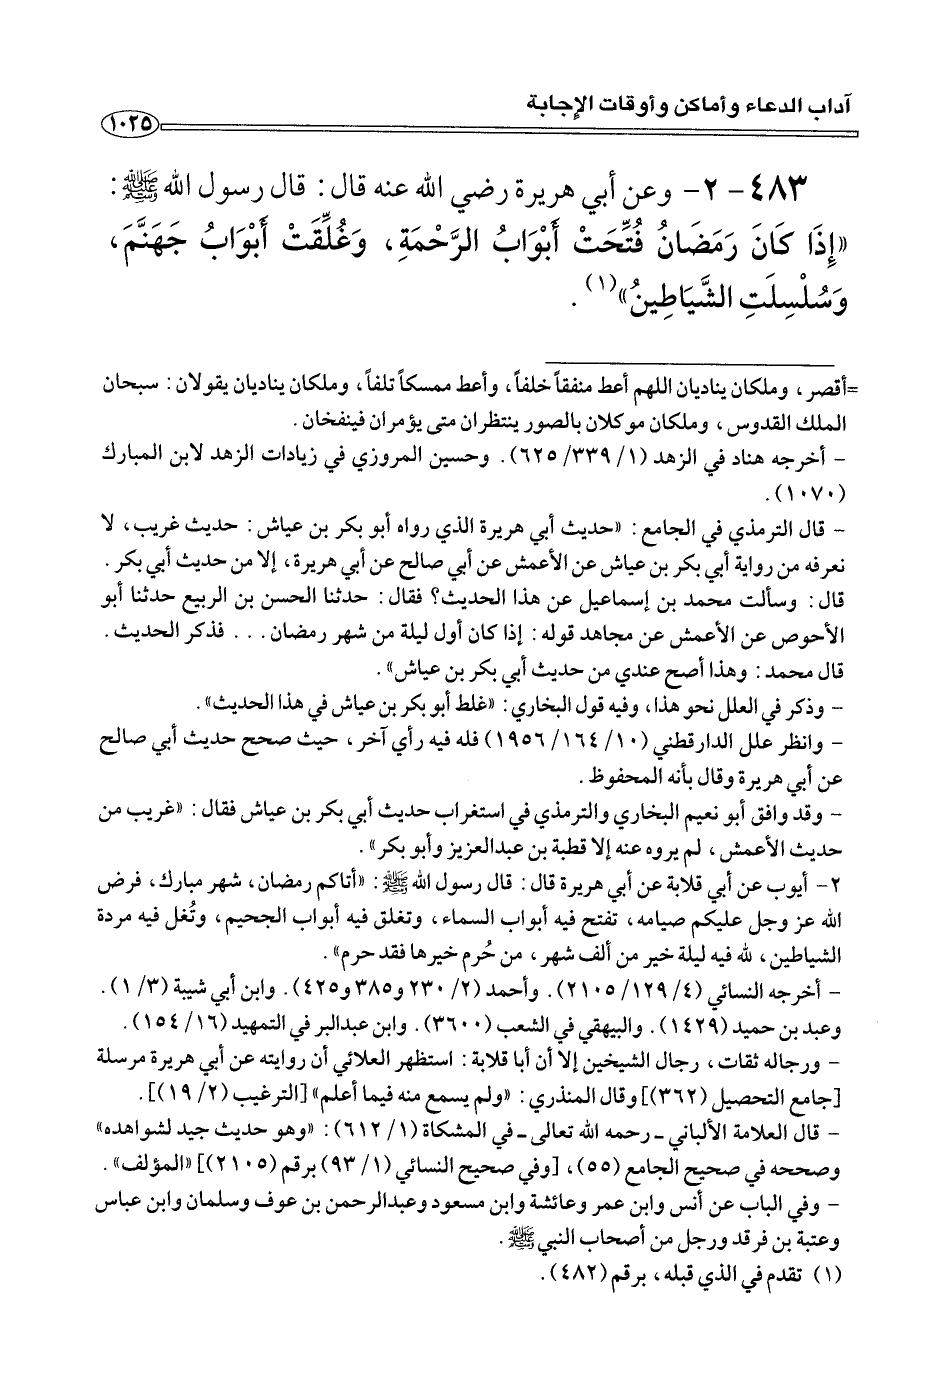 آداب الدعاء وأماكن وأوقات الإجابة
١٠٢٥
٤٨٣ - ٢- وعن أبي هريرة رضي الله عنه قال: قال رسول الله ﷺ:
«إِذَا كَانَ رَمَضَانُ فُتِّحَتْ أَبْوَابُ الرَّحْمَةِ، وَغُلِّقَتْ أَبْوَابُ جَهَنَّمَ،
وَسُلْسِلَتِ الشَّيَاطِينُ»(١).
=أقصر، وملكان يناديان اللهم أعط منفقاً خلفاً، وأعط ممسكاً تلفاً، وملكان يناديان يقولان: سبحان
الملك القدوس، وملكان موكلان بالصور ينتظران متى يؤمران فينفخان.
- أخرجه هناد في الزهد (١/ ٣٣٩/ ٦٢٥). وحسين المروزي في زيادات الزهد لابن المبارك
(١٠٧٠).
- قال الترمذي في الجامع: «حديث أبي هريرة الذي رواه أبو بكر بن عياش: حديث غريب، لا
نعرفه من رواية أبي بكر بن عياش عن الأعمش عن أبي صالح عن أبي هريرة، إلا من حديث أبي بكر.
قال: وسألت محمد بن إسماعيل عن هذا الحديث؟ فقال: حدثنا الحسن بن الربيع حدثنا أبو
الأحوص عن الأعمش عن مجاهد قوله: إذا كان أول ليلة من شهر رمضان... فذكر الحديث.
قال محمد: وهذا أصح عندي من حديث أبي بكر بن عياش».
- وذكر في العلل نحو هذا، وفيه قول البخاري: «غلط أبو بكر بن عياش في هذا الحديث».
- وانظر علل الدارقطني (١٠/ ١٦٤/ ١٩٥٦) فله فيه رأي آخر، حيث صحح حديث أبي صالح
عن أبي هريرة وقال بأنه المحفوظ.
- وقد وافق أبو نعيم البخاري والترمذي في استغراب حديث أبي بكر بن عياش فقال: «غريب من
حديث الأعمش، لم يروه عنه إلا قطبة بن عبدالعزيز وأبو بكر».
٢- أيوب عن أبي قلابة عن أبي هريرة قال: قال رسول الله ﷺ: «أتاكم رمضان، شهر مبارك، فرض
الله عز وجل عليكم صيامه، تفتح فيه أبواب السماء، وتغلق فيه أبواب الجحيم، وتُغل فيه مردة
الشياطين، لله فيه ليلة خير من ألف شهر، من حُرم خيرها فقد حرم».
- أخرجه النسائي (٤/ ١٢٩/ ٢١٠٥). وأحمد (٢/ ٢٣٠ و٣٨٥ و٤٢٥). وابن أبي شيبة (٣/ ١).
وعبد بن حميد (١٤٢٩). والبيهقي في الشعب (٣٦٠٠). وابن عبدالبر في التمهيد (١٦/ ١٥٤).
- ورجاله ثقات، رجال الشيخين إلا أن أبا قلابة: استظهر العلائي أن روايته عن أبي هريرة مرسلة
[جامع التحصيل (٣٦٢)] وقال المنذري: «ولم يسمع منه فيما أعلم» [الترغيب (٢/ ١٩)].
- قال العلامة الألباني ـ رحمه الله تعالى ـ في المشكاة (١/ ٦١٢): «وهو حديث جيد لشواهده»
وصححه في صحيح الجامع (٥٥)، [وفي صحيح النسائي (١/ ٩٣) برقم (٢١٠٥)] «المؤلف».
- وفي الباب عن أنس وابن عمر وعائشة وابن مسعود وعبدالرحمن بن عوف وسلمان وابن عباس
وعتبة بن فرقد ورجل من أصحاب النبي ﷺ.
(١) تقدم في الذي قبله، برقم (٤٨٢).